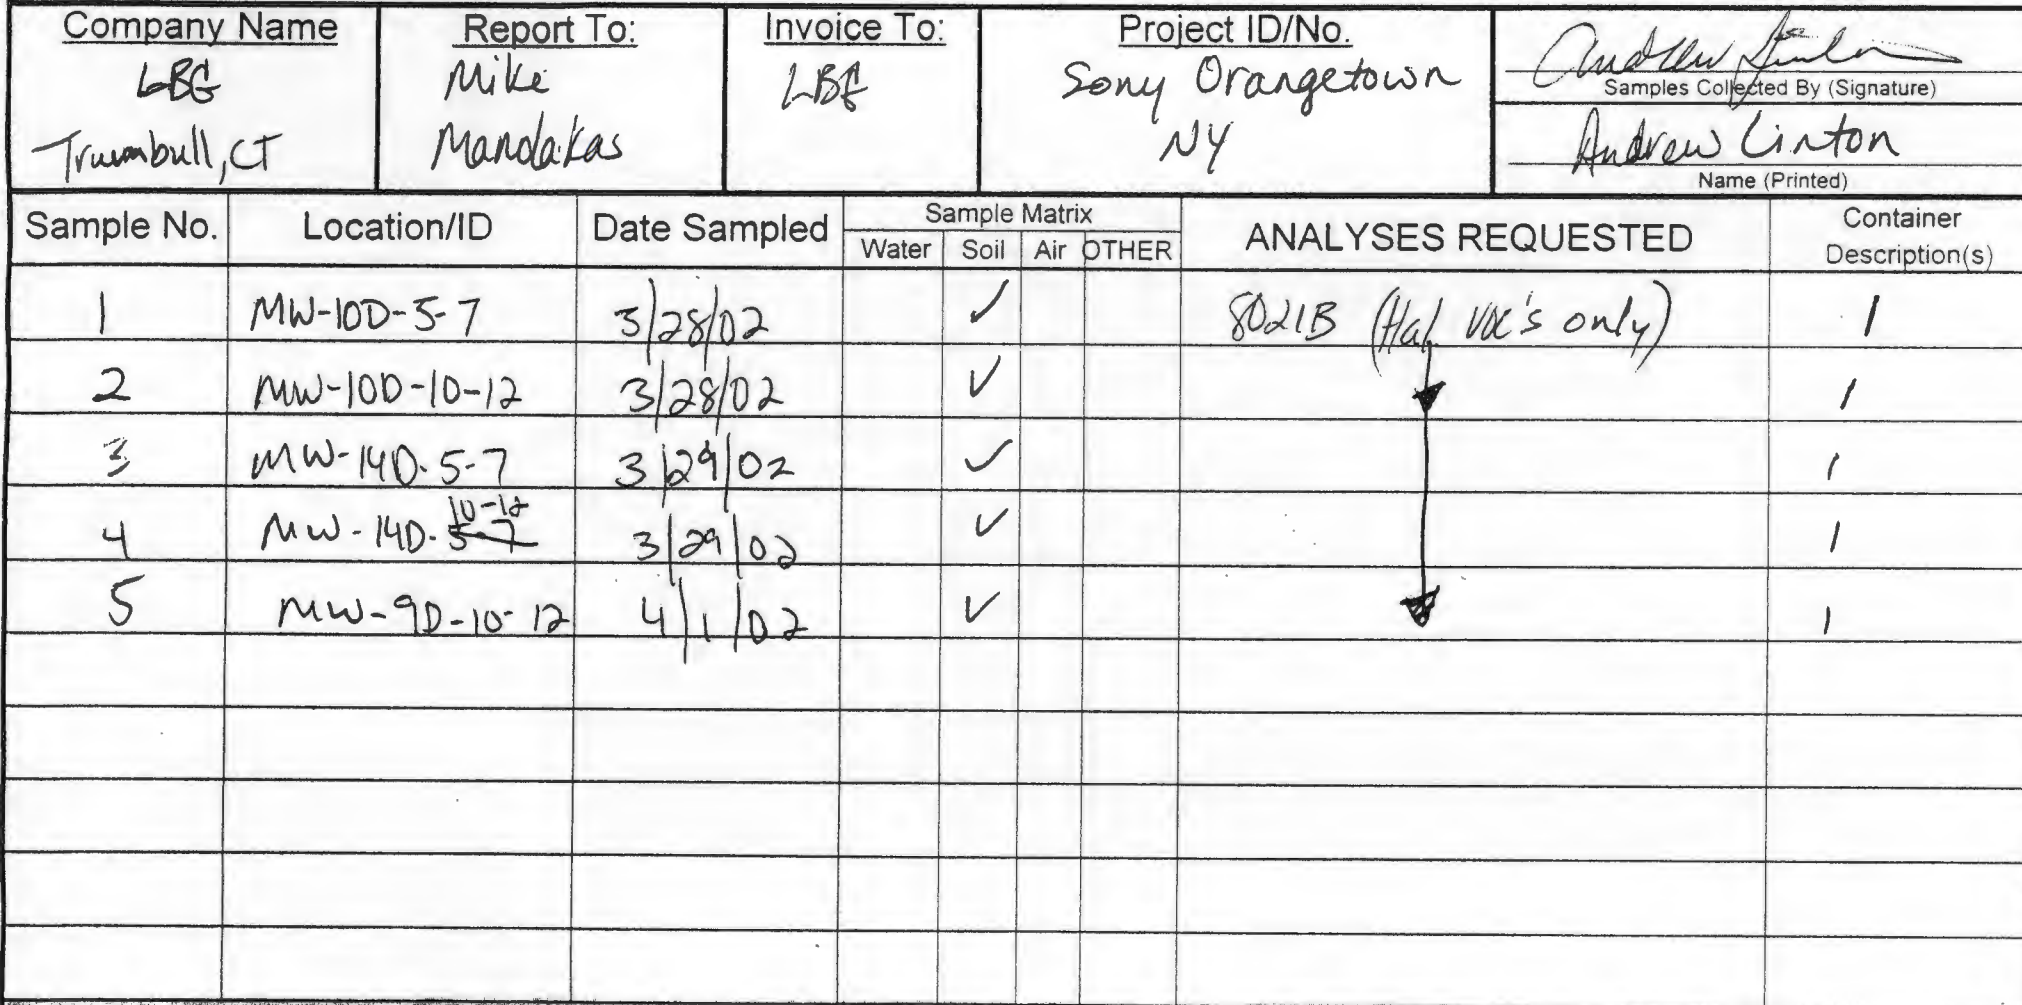 Company Name
LBG
Trumbull, CT
Report To:
Mike
Mandakas
Invoice To:
LBG
Project ID/No.
Sony Orangetown
NY
Samples Collected By (Signature)
Andrew Linton
Name (Printed)
Sample No. Location/ID Date Sampled Sample Matrix ANALYSES REQUESTED Container Description(s)
Water Soil Air OTHER
1 MW-10D-5-7 3/28/02 ✓ 8021B (Hal VOC's only) 1
2 MW-10D-10-12 3/28/02 ✓ 1
3 MW-14D-5-7 3/29/02 ✓ 1
10-12
4 MW-14D-5-7 3/29/02 ✓ 1
5 MW-9D-10-12 4/1/02 ✓ 1